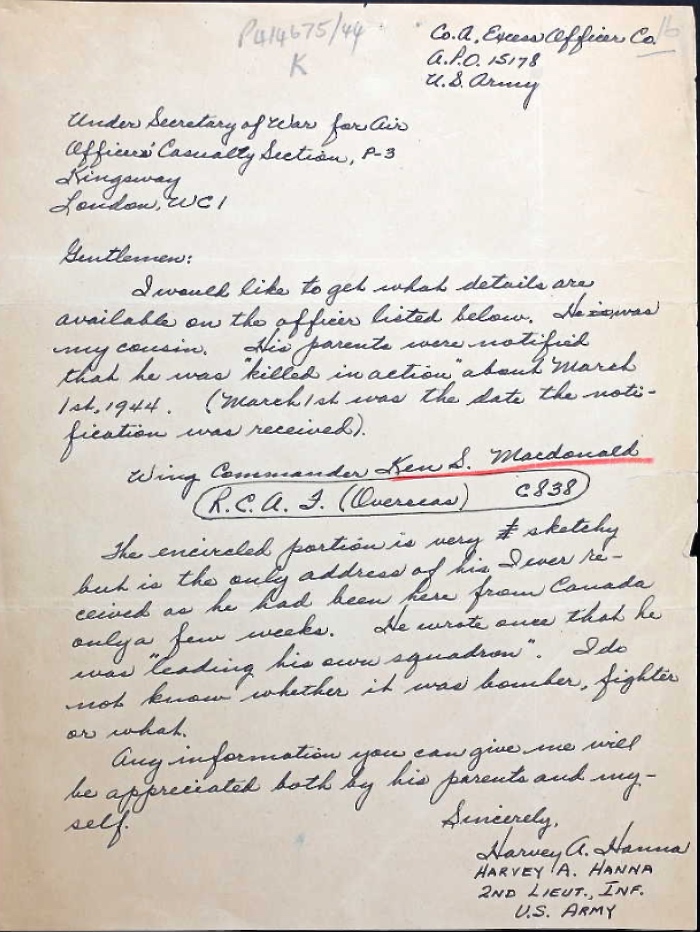 P414675/44
K
16
Co. A. Excess Officer Co.
A.P.O. 15178
U.S. Army
Under Secretary of War for Air
Officers' Casualty Section, P-3
Kingsway
London, WC1
Gentlemen:
I would like to get what details are
available on the officer listed below. He is was
my cousin. His parents were notified
that he was "killed in action" about March
1st, 1944. (March 1st was the date the noti-
fication was received).
Wing Commander Ken S. Macdonald
R.C.A.F. (Overseas) C838
The encircled portion is very sketchy
but is the only address of his I ever re-
ceived as he had been here from Canada
only a few weeks. He wrote once that he
was "leading his own squadron". I do
not know whether it was bomber, fighter
or what.
Any information you can give me will
be appreciated both by his parents and my-
self.
Sincerely,
Harvey A. Hanna
HARVEY A. HANNA
2ND LIEUT., INF.
U.S. ARMY